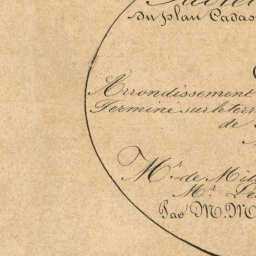 du plan Cadas
Arrondissement
Terminé sur le terr
de
Mr. de Mil
Mr. Le
Par M.M